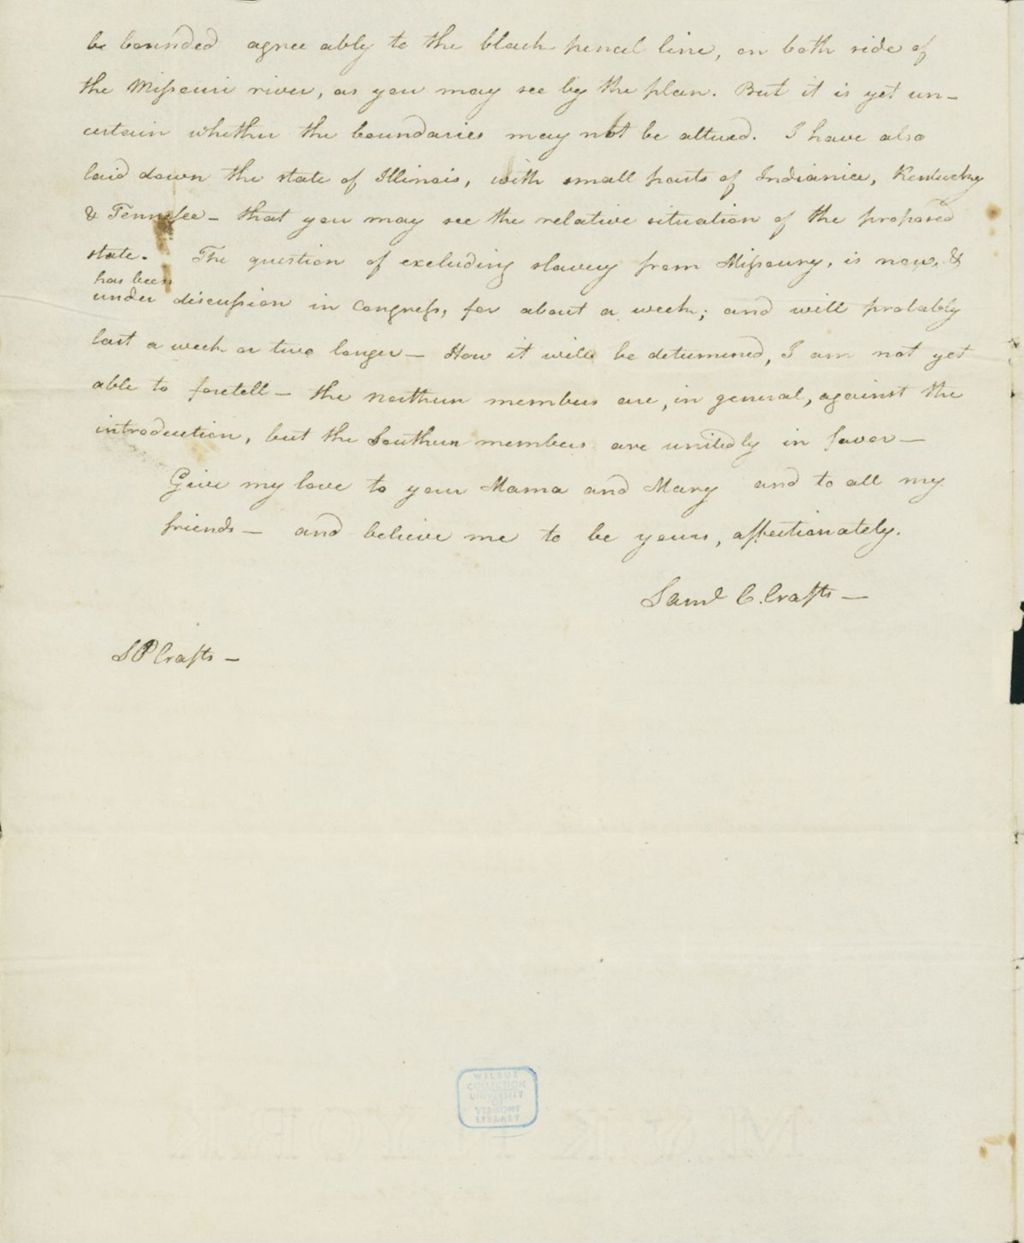 be bounded agree ably to the black pencil line, on both side of
the Missouri river, as you may see by the plan. But it is yet un-
certain whether the boundaries may not be altered. I have also
laid down the state of Illinois, with small parts of Indiania, Kentucky
& Tennessee - that you may see the relative situation of the proposed
state. The question of excluding slavery from Missoury, is now, &
has been
under discussion in Congress, for about a week; and will probably
last a week or two longer - How it will be determined, I am not yet
able to foretell - the northern members are, in general, against the
introduction, but the Southern members are unitedly in favor -
Give my love to your Mama and Mary and to all my
friends - and believe me to be yours, affectionately.
Saml C. Crafts -
S P Crafts -
WILBUR
COLLECTION
UNIVERSITY
OF
VERMONT
LIBRARY